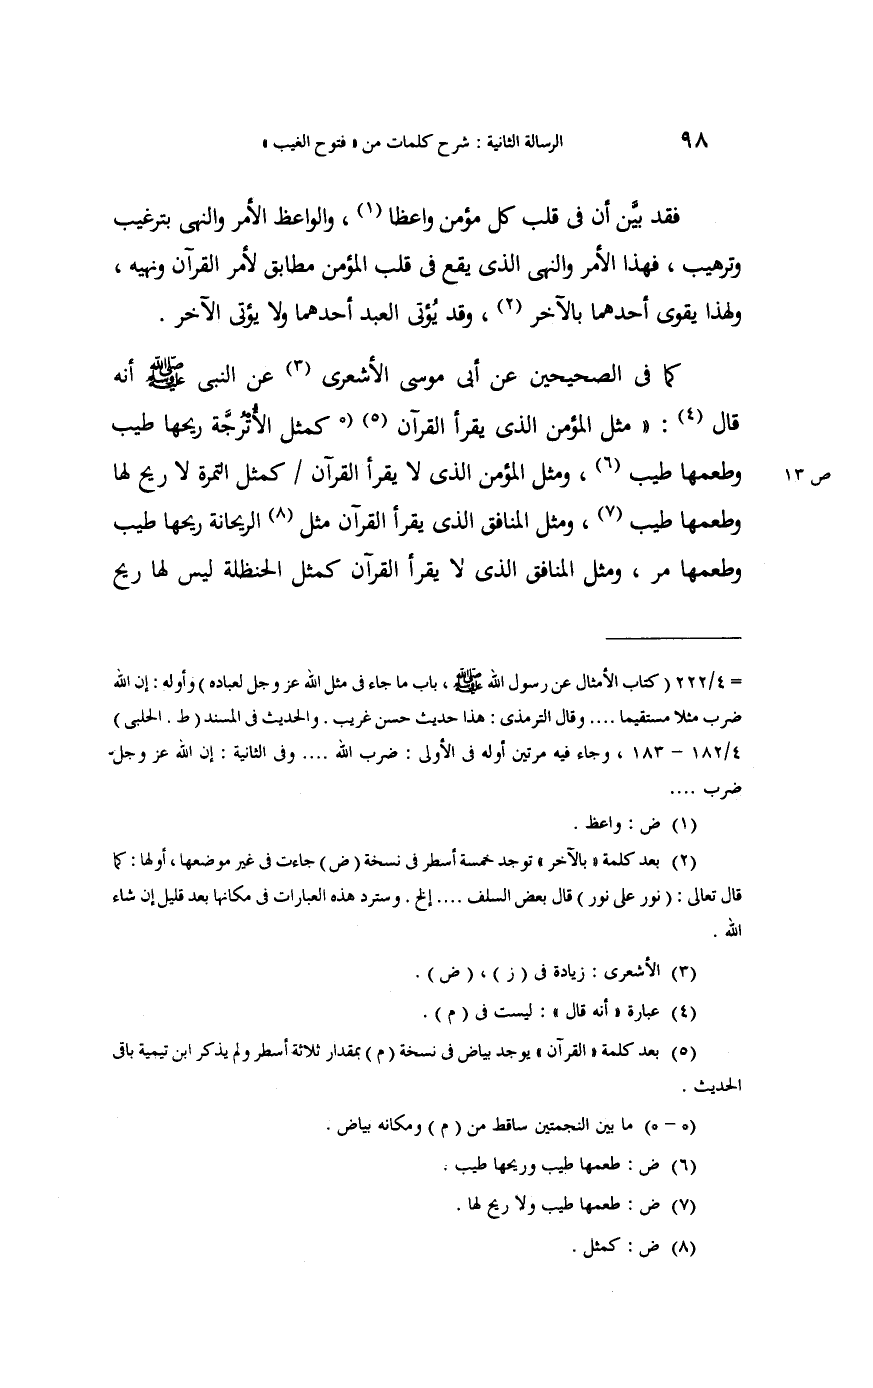 ٩٨ الرسالة الثانية : شرح كلمات من « فتوح الغيب »
فقد بيَّن أن فى قلب كل مؤمن واعظا (١) ، والواعظ الأمر والنهى بترغيب
وترهيب ، فهذا الأمر والنهى الذى يقع فى قلب المؤمن مطابق لأمر القرآن ونهيه ،
ولهذا يقوى أحدهما بالآخر (٢) ، وقد يُؤتى العبد أحدهما ولا يؤتى الآخر .
كما فى الصحيحين عن أبى موسى الأشعرى (٣) عن النبى ﷺ أنه
قال (٤) : « مثل المؤمن الذى يقرأ القرآن (٥) (* كمثل الأُتْرُجَّة ريحها طيب
وطعمها طيب (٦) ، ومثل المؤمن الذى لا يقرأ القرآن / كمثل التمرة لا ريح لها ص ١٣
وطعمها طيب (٧) ، ومثل المنافق الذى يقرأ القرآن مثل (٨) الريحانة ريحها طيب
وطعمها مر ، ومثل المنافق الذى لا يقرأ القرآن كمثل الحنظلة ليس لها ريح
= ٢٢٢/٤ ( كتاب الأمثال عن رسول الله ﷺ ، باب ما جاء فى مثل الله عز وجل لعباده ) وأوله : إن الله
ضرب مثلا مستقيما .... وقال الترمذى : هذا حديث حسن غريب . والحديث فى المسند ( ط . الحلبى )
١٨٢/٤ – ١٨٣ ، وجاء فيه مرتين أوله فى الأولى : ضرب الله .... وفى الثانية : إن الله عز وجل
ضرب ....
(١) ض : واعظ .
(٢) بعد كلمة « بالآخر » توجد خمسة أسطر فى نسخة ( ض ) جاءت فى غير موضعها ، أولها : كما
قال تعالى : ( نور على نور ) قال بعض السلف .... إلخ . وسترد هذه العبارات فى مكانها بعد قليل إن شاء
الله .
(٣) الأشعرى : زيادة فى ( ز ) ، ( ض ) .
(٤) عبارة « أنه قال » : ليست فى ( م ) .
(٥) بعد كلمة « القرآن » يوجد بياض فى نسخة ( م ) بمقدار ثلاثة أسطر ولم يذكر ابن تيمية باقى
الحديث .
(* – *) ما بين النجمتين ساقط من ( م ) ومكانه بياض .
(٦) ض : طعمها طيب وريحها طيب .
(٧) ض : طعمها طيب ولا ريح لها .
(٨) ض : كمثل .